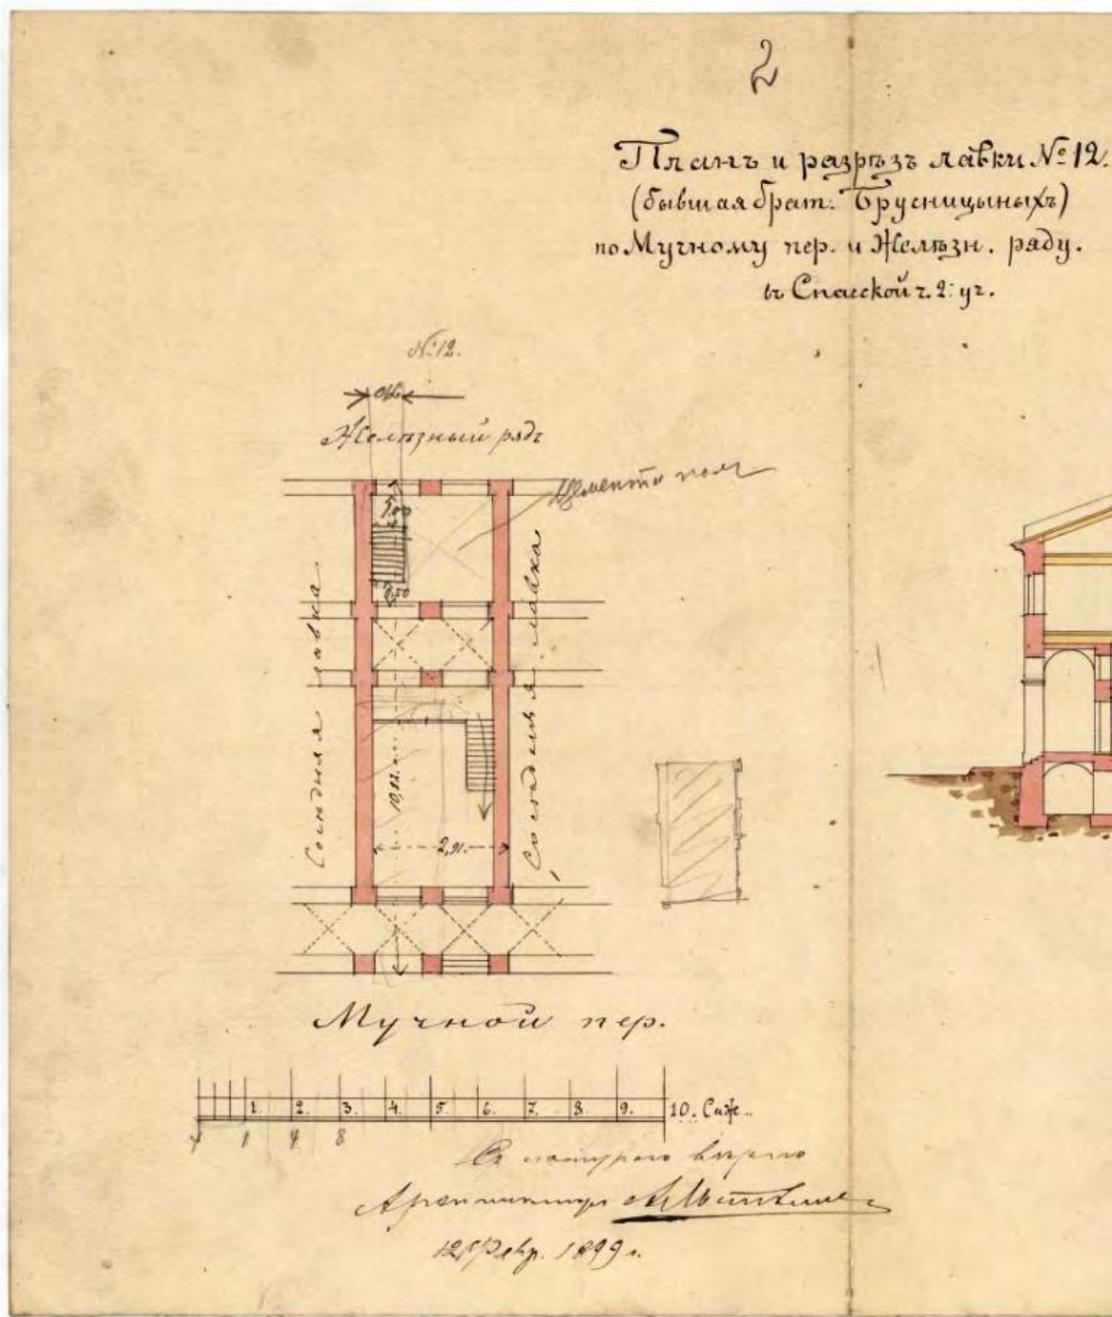 2
Планъ и разрѣзъ лавки № 12.
(бывшая брат. Брусницыныхъ)
по Мучному пер. и Желѣзн. ряду.
въ Спасской ч. 2: уч.
№ 12.
Желѣзный рядъ
Сосѣдняя лавка
Сосѣдняя лавка
10,82.
2,91.
Мучной пер.
1. 2. 3. 4. 5. 6. 7. 8. 9. 10. Саж.
Съ натурою вѣрно
Архитекторъ
12 Февр. 1899 г.